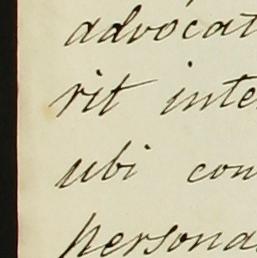 advocat
rit inte
ubi con
persona